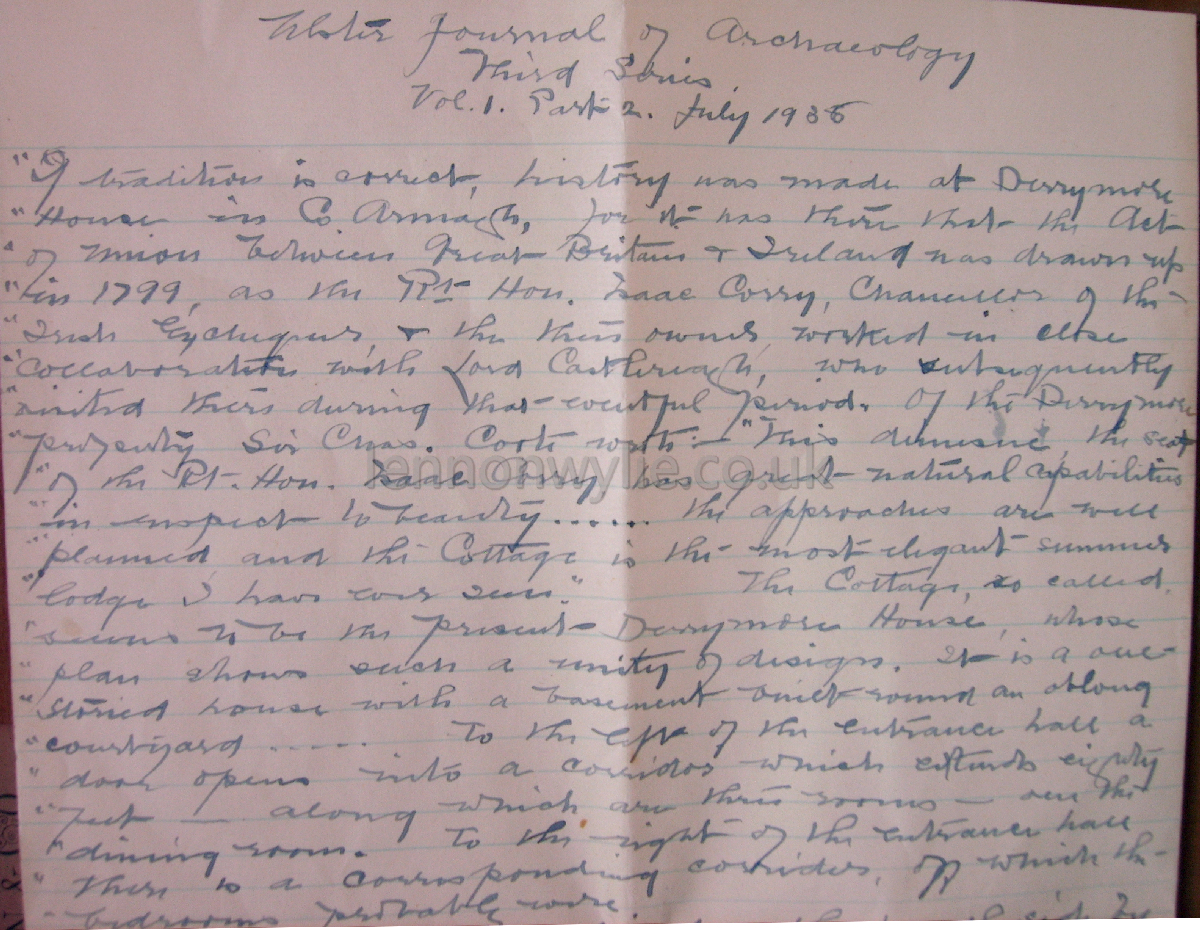 Ulster Journal of Archaeology
Third Series
Vol. 1. Part 2. July 1938
"If tradition is correct, history was made at Derrymore
"House in Co Armagh, for it was there that the Act
"of Union between Great Britain & Ireland was drawn up
"in 1799, as the Rt. Hon. Isaac Corry, Chancellor of the
"Irish Exchequer, & the then owner, worked in close
"collaboration with Lord Castlereagh, who subsequently
"visited there during that eventful period. Of the Derrymore
"property Sir Chas. Coote wrote:— "This demesne, the seat
"of the Rt. Hon. Isaac Corry has great natural capabilities
"in respect to beauty...... the approaches are well
"planned and the Cottage is the most elegant summer
"lodge I have ever seen." The Cottage, so called,
"seems to be the present Derrymore House, whose
"plan shows such a unity of design. It is a one-
"storied house with a basement built round an oblong
"courtyard ...... To the left of the entrance hall a
"door opens into a corridor which extends eighty
"feet — along which are three rooms — one the
"dining room. To the right of the entrance hall
"there is a corresponding corridor, off which the
"bedrooms probably were
lennonwylie.co.uk